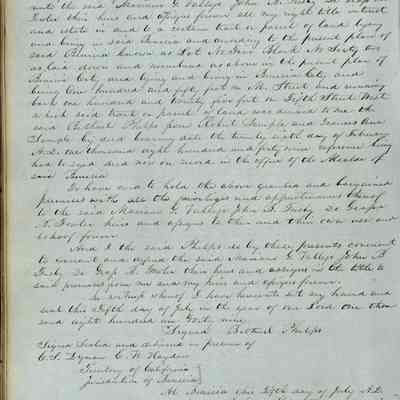 unto the said Mariano G. Vallejo John B. Frisby
heirs and assigns forever all my right title interest
and estate in and to a certain tract or parcel of land lying
and being in said Benicia and according to the present plan of
said Benicia known as Lot No Four Block No Sixty two
as laid down and numbered as above in the present plan of
Benicia City and lying and being in Benicia City and
being One hundred and fifty feet on M. Street and running
back one hundred and twenty five feet on Fifth Street West
which said tract or parcel of land was deeded to me the
said Bethuel Phelps from Robert Semple and Frances Ann
Semple by deed bearing date the twenty sixth day of February
A.D. one thousand eight hundred and forty nine reference being
had to said deed now on record in the office of the Alcalde of
said Benicia
To have and to hold the above granted and bargained
premises with all the privileges and appurtenances thereof
to the said Mariano G. Vallejo John B. Frisby
heirs and assigns to them and their own use and
behoof forever
And I the said Phelps do by these presents covenant
to warrant and defend the said Mariano G. Vallejo John B
Frisby their heirs and assigns in the title to
said premises from me and my heirs and assigns forever.
In witness whereof I have hereunto set my hand and
seal this Fifth day of July in the year of our Lord One thou
sand eight hundred and forty nine
Signed Bethuel Phelps
Signed Sealed and delivered in presence of
C. W. Hayden
Territory of California
jurisdiction of Benicia
At Benicia this Fifth day of July A.D.